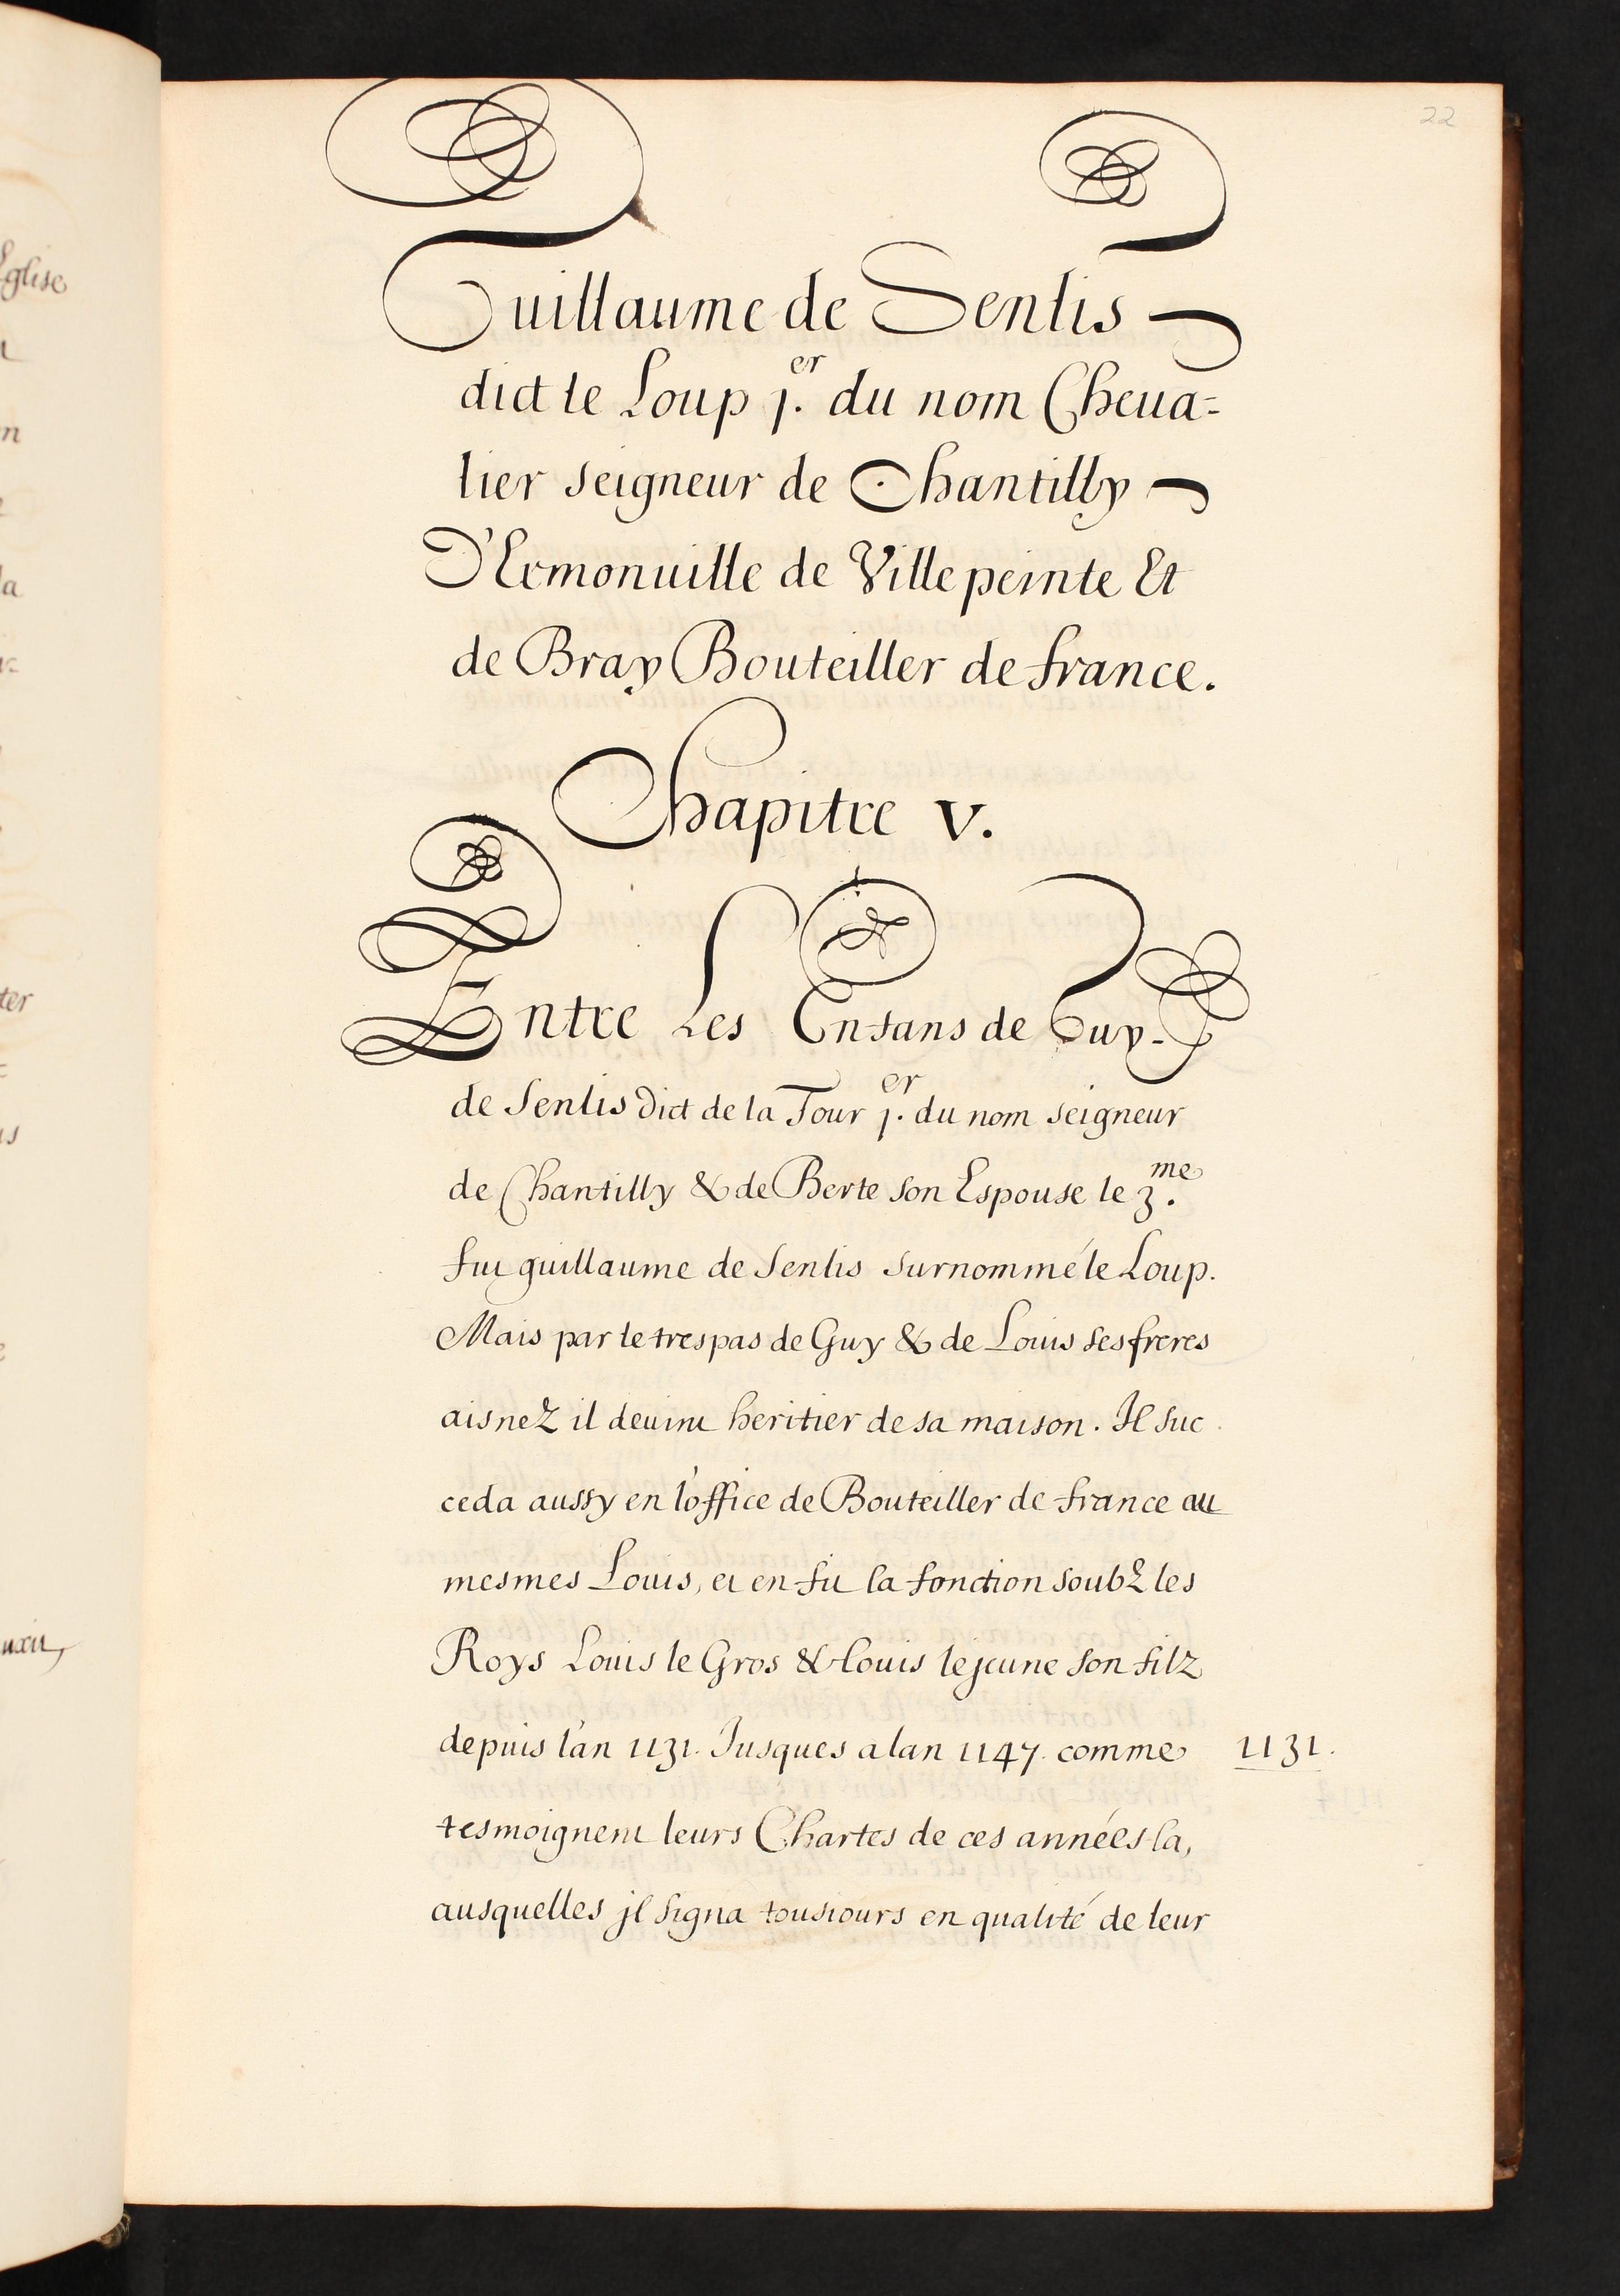 22
Guillaume de Senlis
dict le Loup j.er du nom Cheua=
lier seigneur de Chantilly
D'Ermonuille de Villepeinte Et
de Bray Bouteiller de france.
Chapitre V.
Entre Les Enfans de Guy
de Senlis dict de la Tour j.er du nom seigneur
de Chantilly & de Berte son Espouse le 3.me
fut guillaume de Senlis surnommé le Loup.
Mais par le trespas de Guy & de Louis ses freres
aisnez il deuint heritier de sa maison. Il suc
ceda aussy en l'office de Bouteiller de france au
mesmes Louis, et en fit la fonction soubz les
Roys Louis le Gros & Louis le jeune son filz
depuis l'an 1131. Jusques a lan 1147. comme
1131.
tesmoignent leurs Chartes de ces années la,
ausquelles jl signa tousiours en qualité de leur
Eglise
n
la
ter